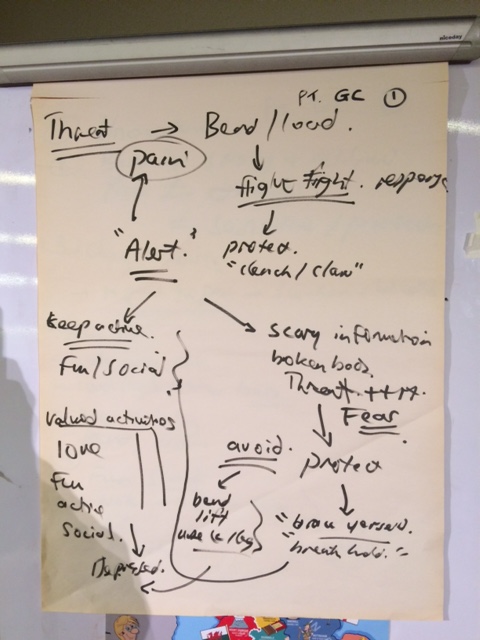 PT. GC ①
Threat → Bend/load.
pain
flight fight. response
"Alert."
protect.
"clench/claw"
keep active.
Fun/social
scary information
Threat ++++.
Fear
valued activities
love
Fun
active
social.
avoid.
protect
bend
lift
"brace yourself."
"breath hold."
Depressed.